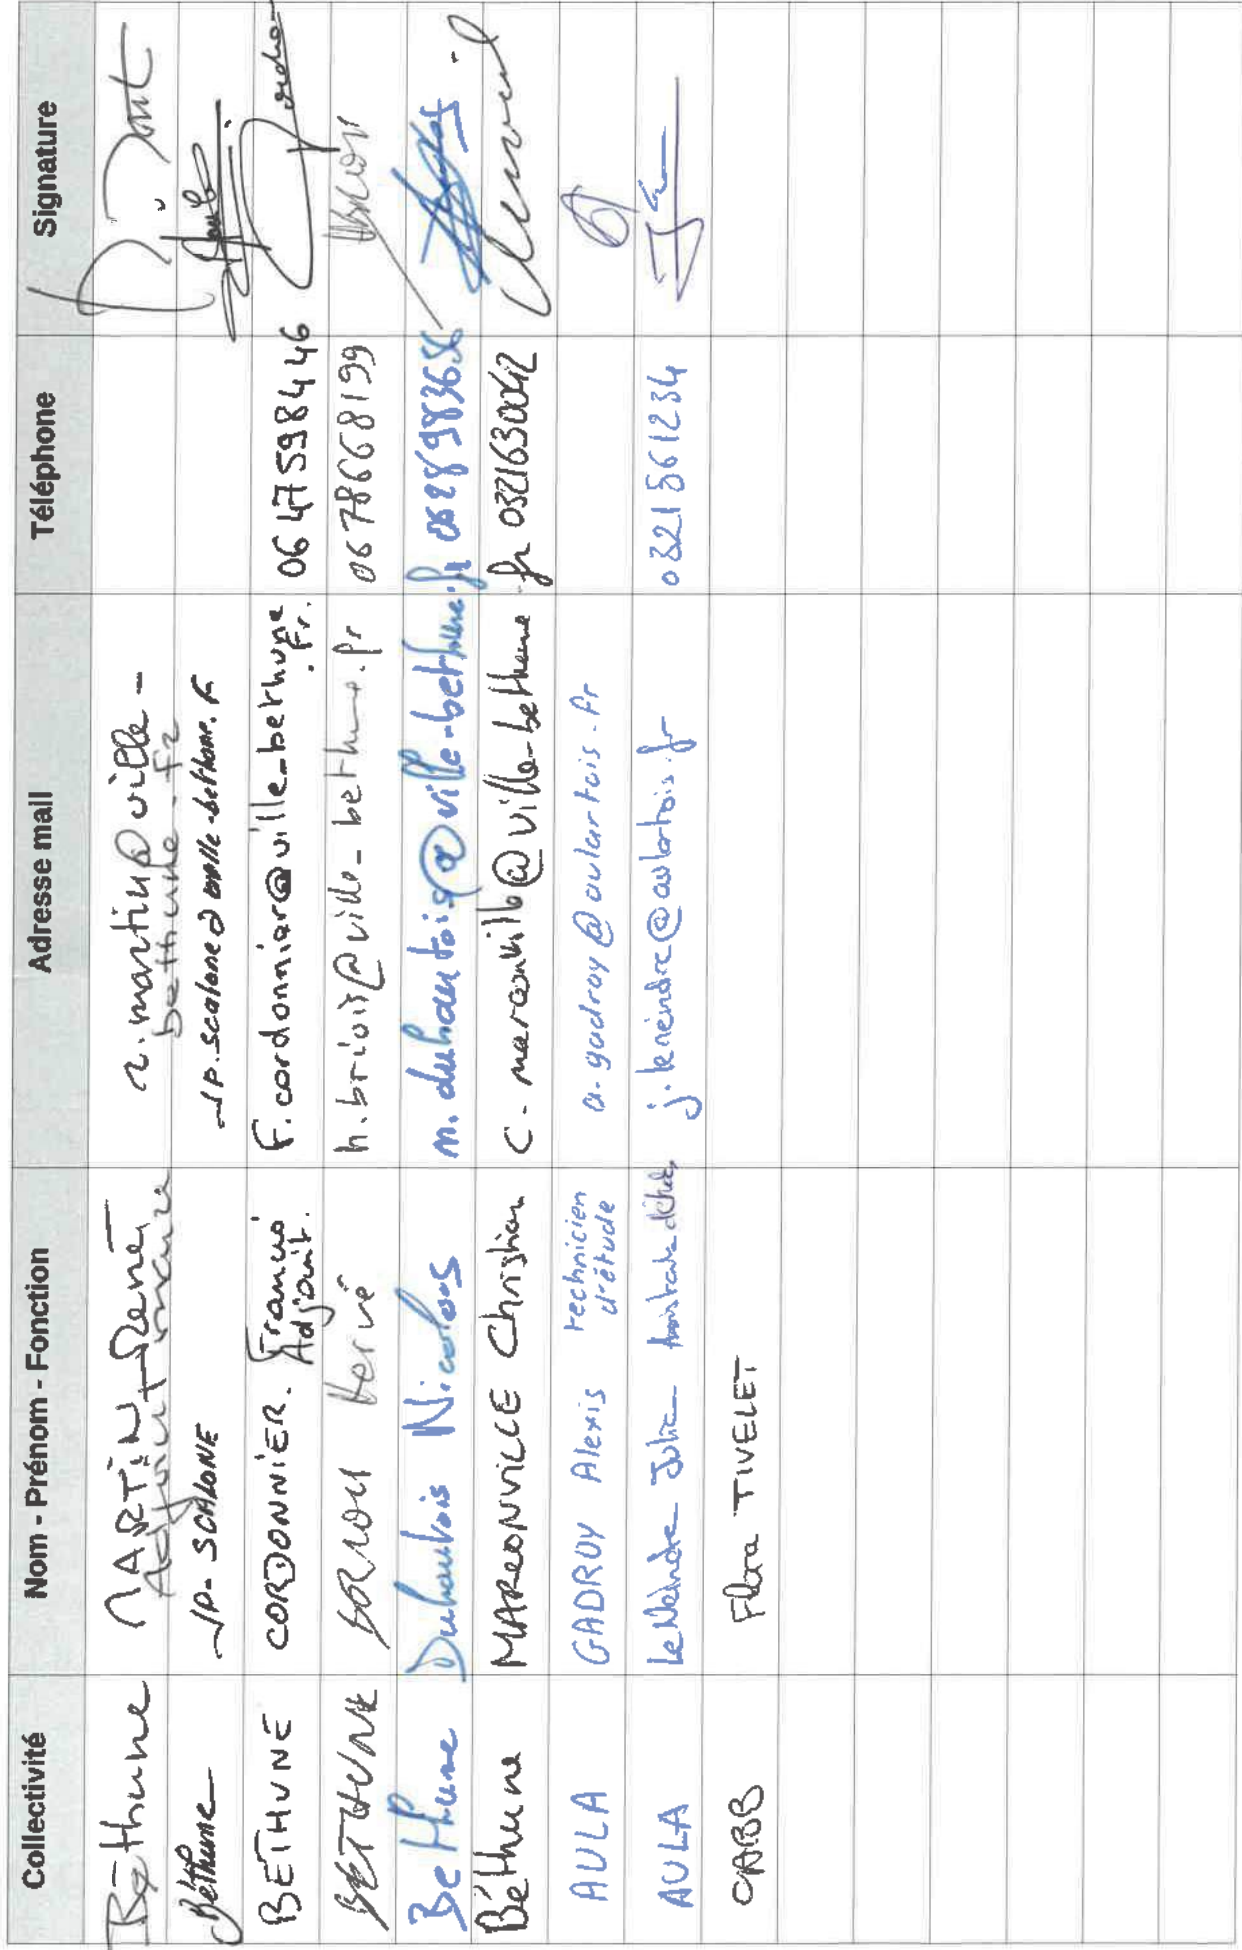 Collectivité Nom - Prénom - Fonction Adresse mail Téléphone Signature
Béthune MARTIN René r. martin@ville-
Adjoint maire bethune.fr
Béthune JP- SCALONE JP.scalone@ville-bethune.fr
BETHUNE CORDONNIER. Francis F.cordonnier@ville_bethune 0647598446
Adjoint. .Fr.
BETHUNE Hervé h.briois@ville_bethune.fr 0678668199
Bethune Duhautois Nicolas n.duhautois@ville-bethune.fr 0628983656
Béthune MAREONVILLE Christian C-mareonville@ville-bethune.fr 0321630042
AULA GADROY Alexis technicien a.gadroy@aulartois.fr
d'étude
AULA Le Neindre Julie j.leneindre@aulartois.fr 0321561234
CABB Flora TIVELET